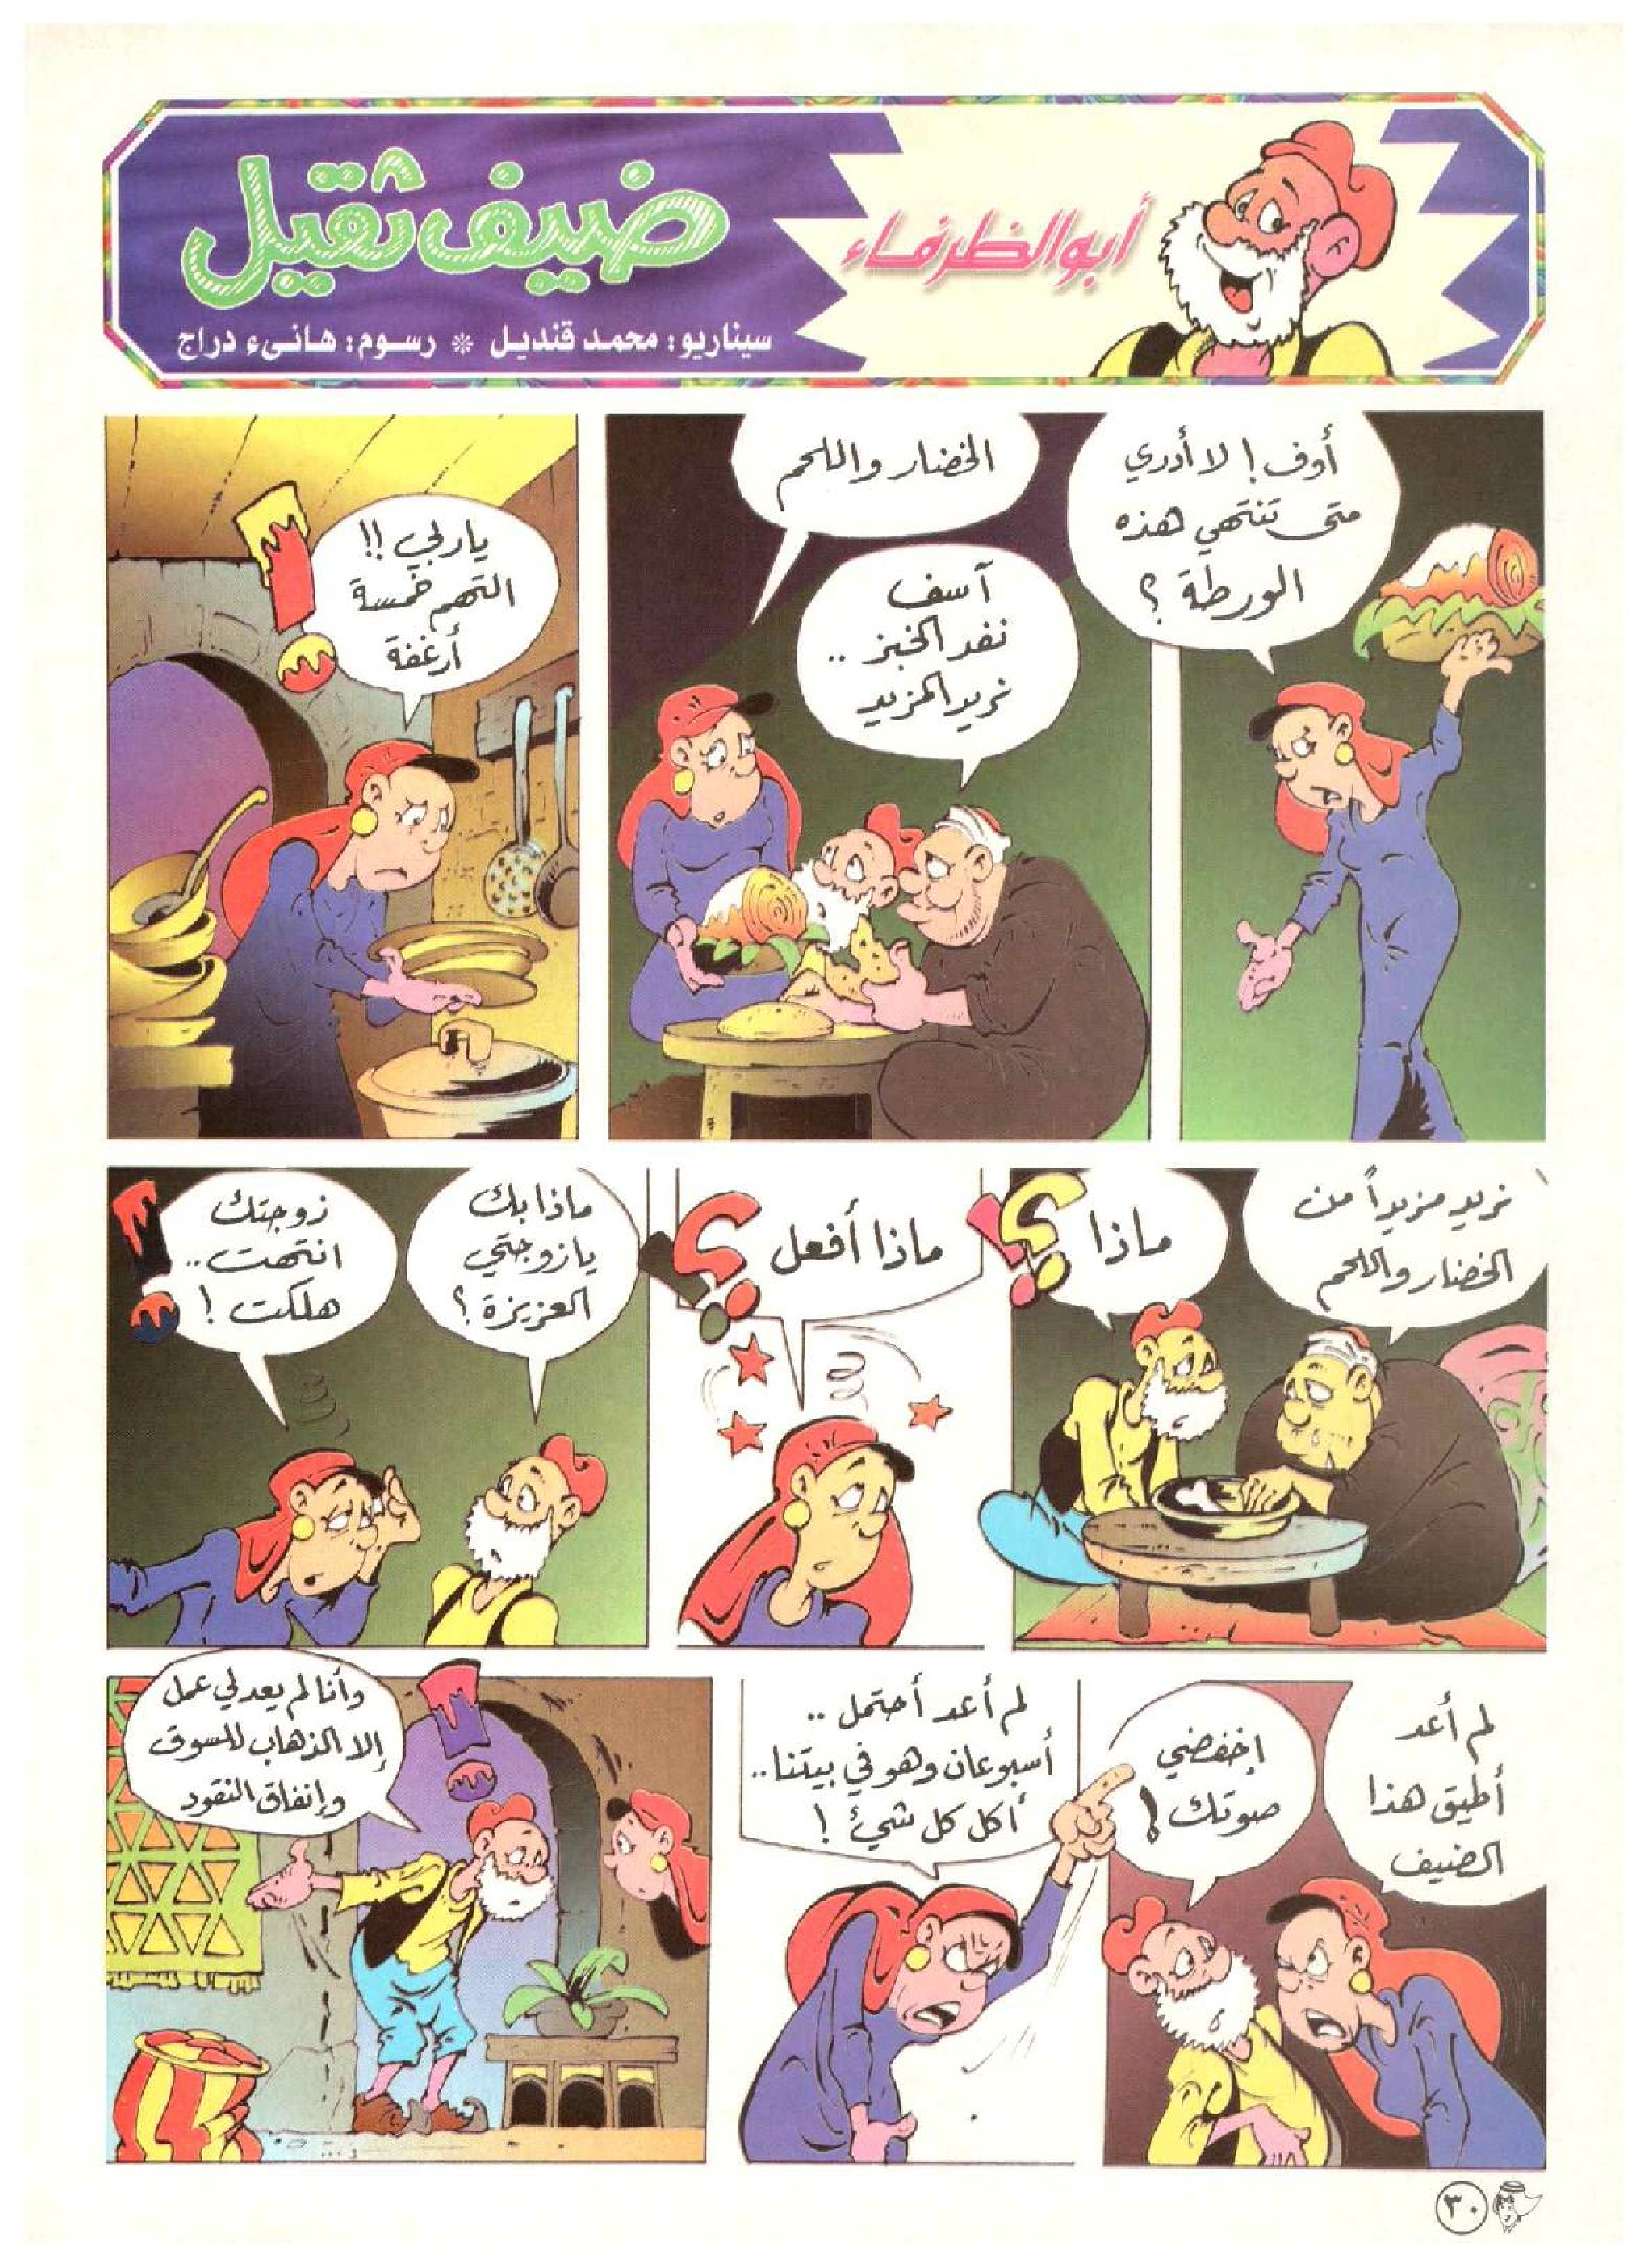 أبو الظرفاء
ضيف ثقيل
سيناريو: محمد قنديل * رسوم: هانىء دراج
أوف! لا أدري
متى تنتهي هذه
الورطة؟
الخضار واللحم
آسف
نفد الخبز ..
نريد المزيد
ياربي!!
التهم خمسة
أرغفة
نريد مزيداً من
الخضار واللحم
ماذا؟!
ماذا أفعل؟!
ماذا بك
يا زوجتي
العزيزة؟
زوجتك
انتهت ..
هلكت!
لم أعد
أطيق هذا
الضيف
إخفضي
صوتك!
لم أعد أحتمل ..
أسبوعان وهو في بيتنا ..
أكل كل شيئ!
وأنا لم يعد لي عمل
إلا الذهاب للسوق
وإنفاق النقود
٣٠